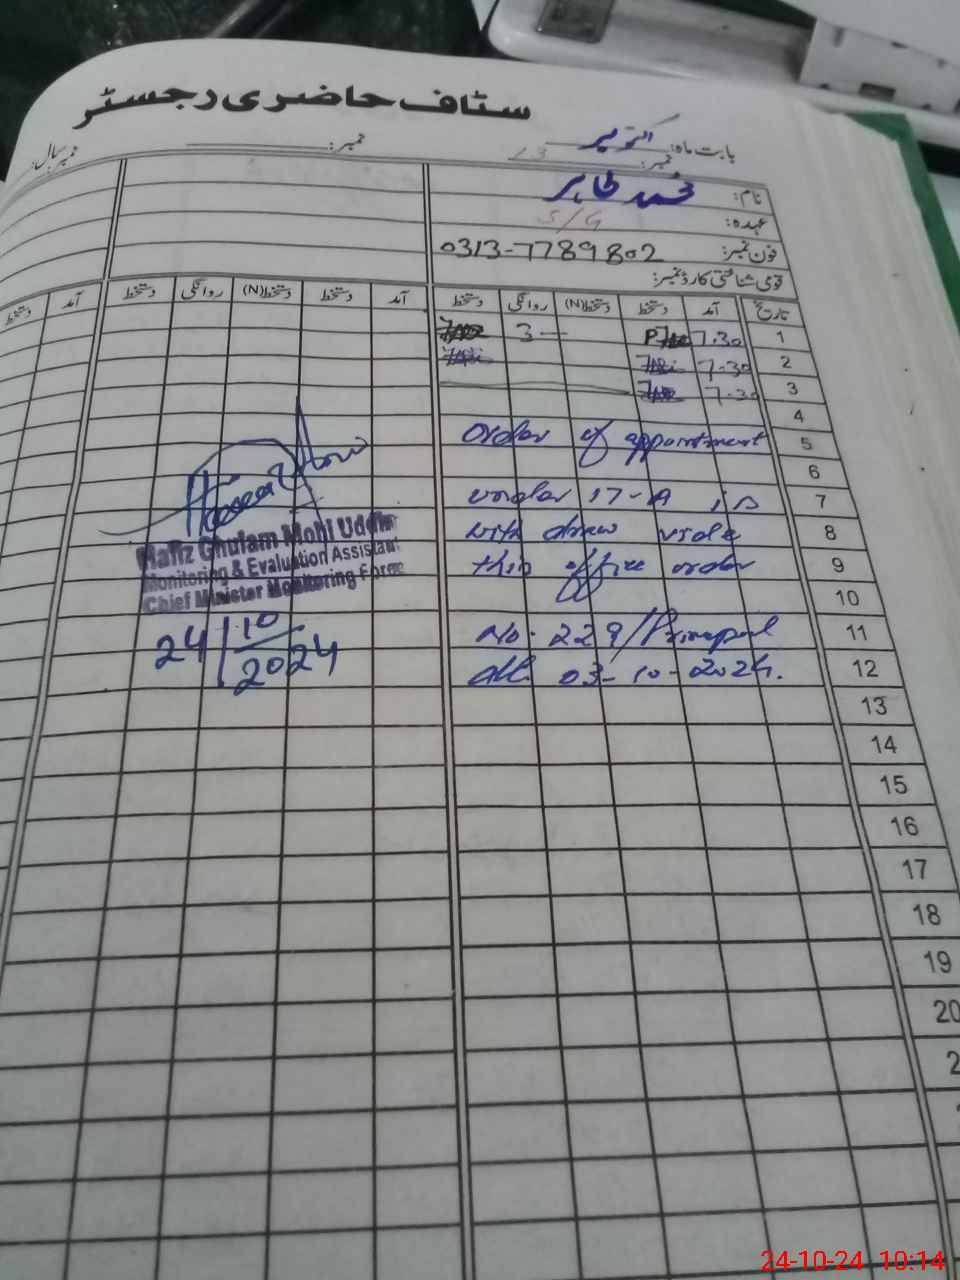 سٹاف حاضری رجسٹر
بابت ماہ: اکتوبر
نمبر: 13 نمبر: نمبر
نام: محمد طاہر
عہدہ: S/G
فون نمبر: 0313-7789802
قومی شناختی کارڈ نمبر:
تاریخ آمد دستخط دستخط(N) روانگی دستخط آمد دستخط دستخط(N) روانگی دستخط آمد دستخط
1 7.30 3
2 7-30
3 7-30
4
5 order of appointment
6
7 under 17-A is
8 with drew vide
9 this office order
10
11 No. 229/Principal
12 dt. 03-10-2024.
13
14
15
16
17
18
19
20
Hafiz Ghulam Mohi Uddin
Monitoring & Evaluation Assistant
Chief Minister Monitoring Force
24/10/2024
24-10-24 10:14